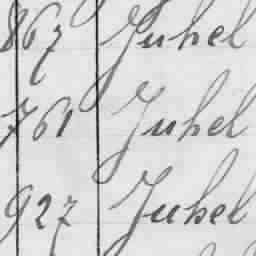 867 Juhel
761 Juhel
927 Juhel